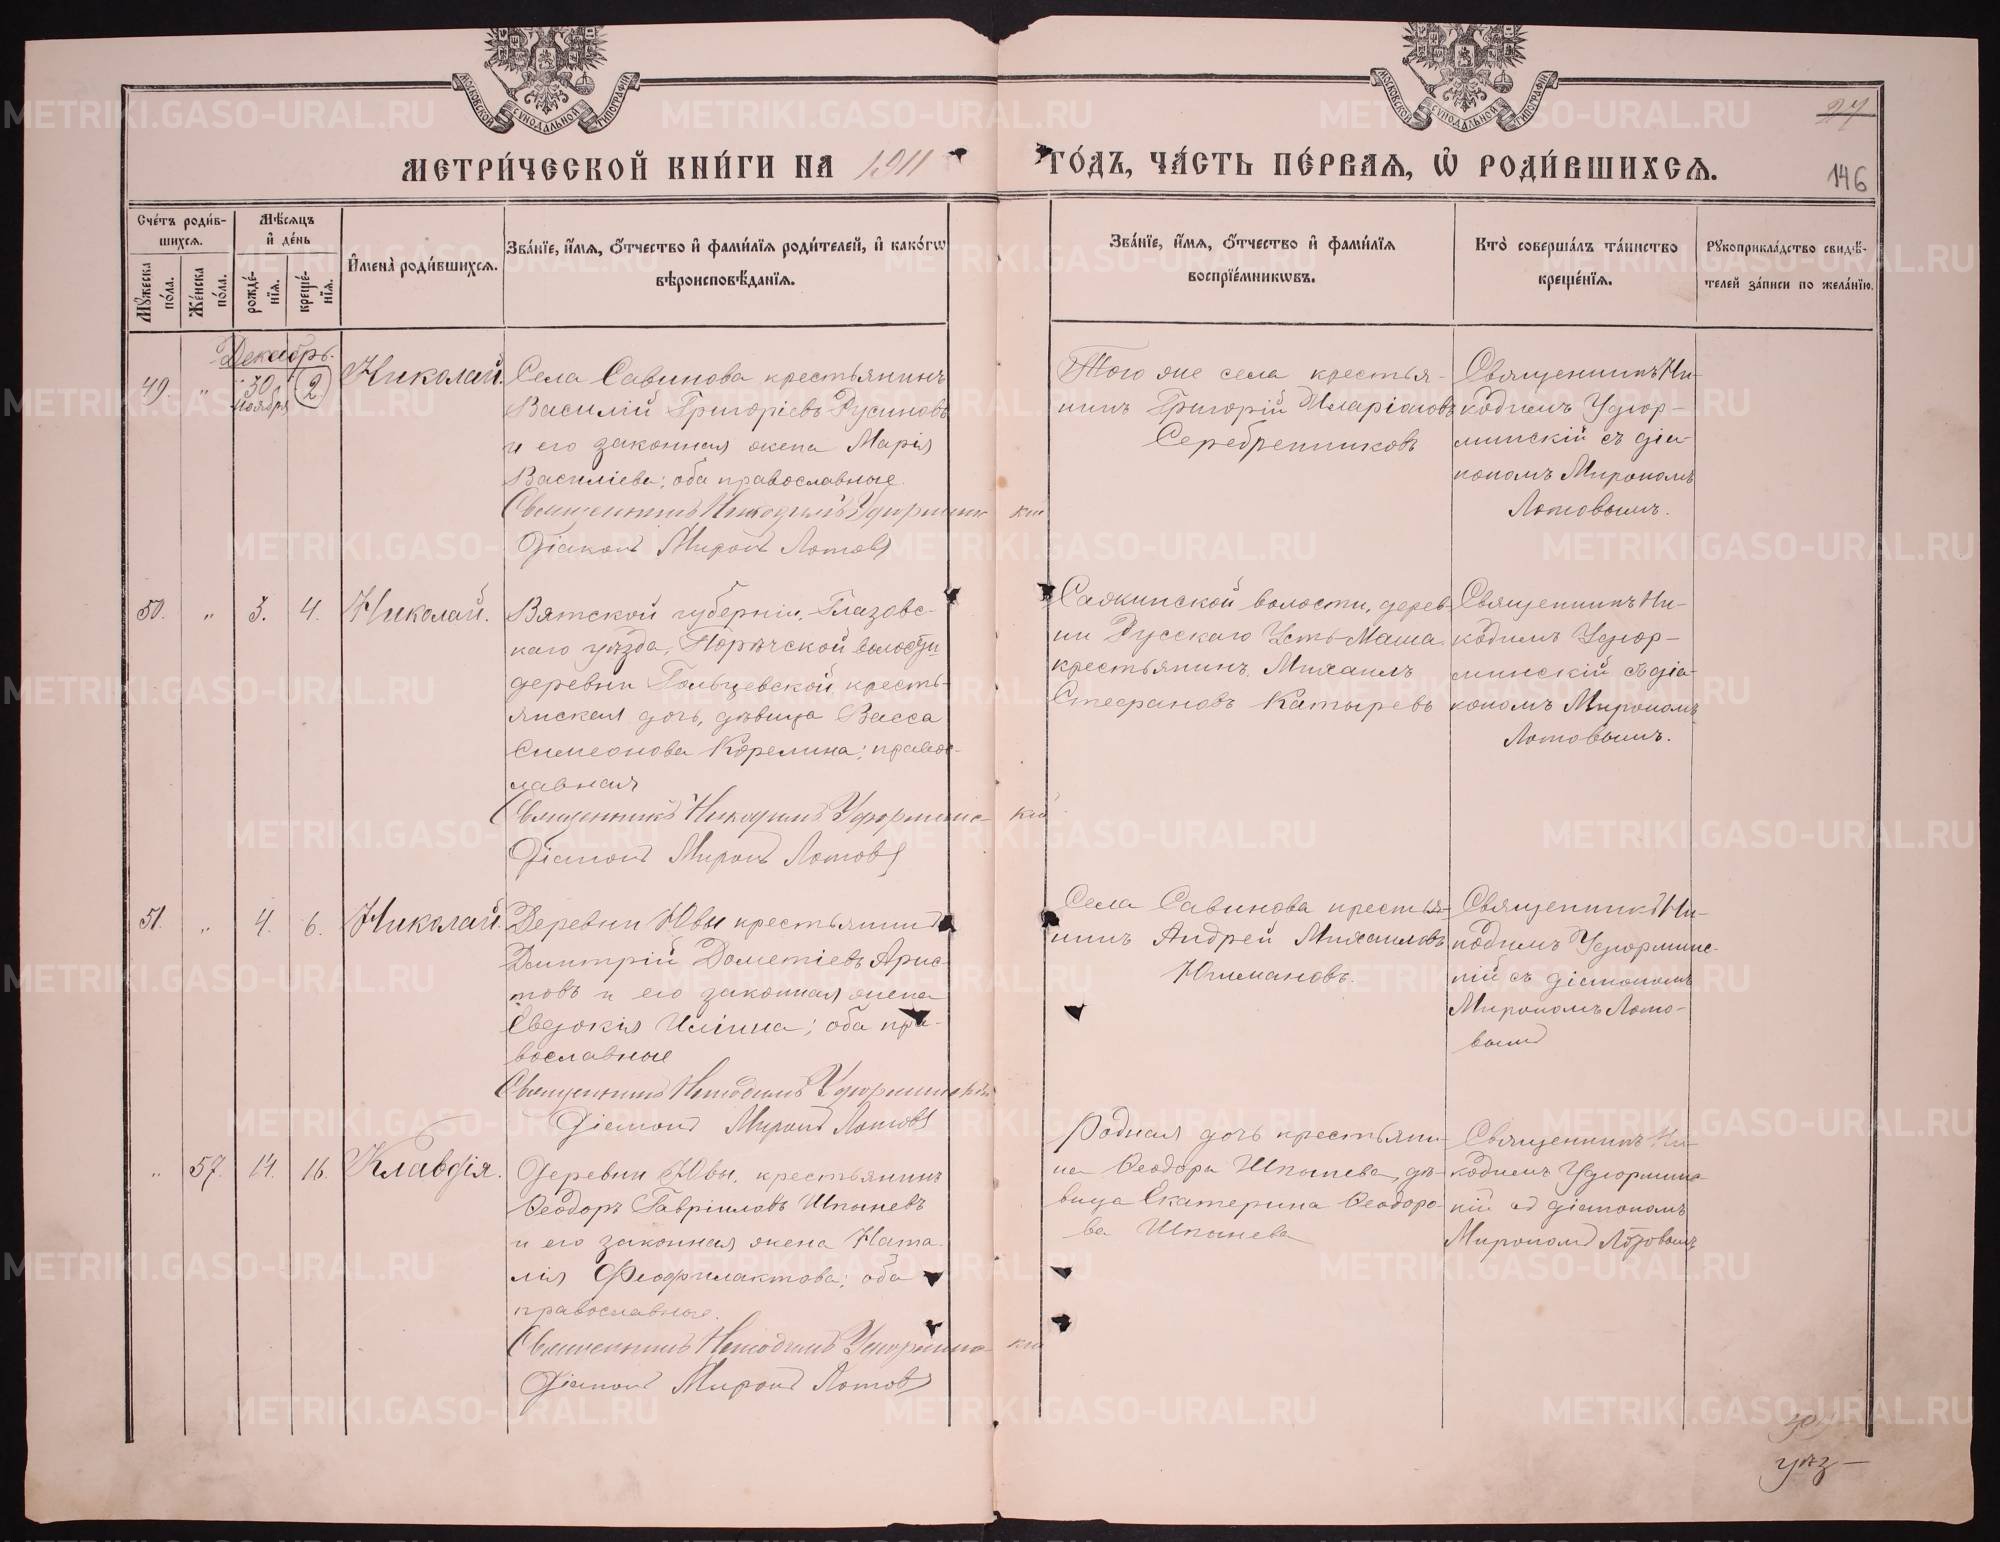 МОСКОВСКОЙ СѴНОДАЛЬНОЙ ТИПОГРАФІИ
МОСКОВСКОЙ СѴНОДАЛЬНОЙ ТИПОГРАФІИ
27
МЕТРИ́ЧЕСКОЙ КНИ́ГИ НА 1911
ГО́ДЪ, ЧА́СТЬ ПЕ́РВАѦ, Ѡ҆ РОДИ́ВШИХСѦ.
146
Сче́тъ роди́в-
шихсѧ.
Мꙋ́жеска по́ла.
Же́нска по́ла.
Мѣ́сѧцъ
и҆ де́нь
рожде́-
нїѧ.
креще́-
нїѧ.
И҆мена̀ роди́вшихсѧ.
Зва́нїе, и҆́мѧ, ѻ҆́тчество и҆ фами́лїѧ роди́телей, и҆ како́гѡ
вѣроисповѣ́данїѧ.
Зва́нїе, и҆́мѧ, ѻ҆́тчество и҆ фами́лїѧ
воспрїе́мникѡвъ.
Кто̀ соверша́лъ та́инство
креще́нїѧ.
Рꙋкоприкла́дство свидѣ́-
телей за́писи по жела́нїю.
Декабрь.
49. " 30 ноября 2 Николай.
Села Савинова крестьянинъ
Василій Григоріевъ Русиновъ
и его законная жена Марія
Василіева; оба православные.
Священникъ Никодимъ Удюрминскій
Діаконъ Миронъ Лотовъ
Того же села крестья-
нинъ Григорій Иларіоновъ
Серебренниковъ
Священникъ Ни-
кодимъ Удюр-
минскій съ діа-
кономъ Мирономъ
Лотовымъ.
50. " 3. 4. Николай.
Вятской губерніи, Глазовс-
каго уѣзда, Порѣчской волости
деревни Гольцевской, кресть-
янская дочь, дѣвица Васса
Симеонова Корелина; правос-
лавная
Священникъ Никодимъ Удюрминскій
Діаконъ Миронъ Лотовъ
Сажинской волости, дерев-
ни Русскаго Усть-Маша
крестьянинъ Михаилъ
Стефановъ Катыревъ
Священникъ Ни-
кодимъ Удюр-
минскій съ діа-
кономъ Мирономъ
Лотовымъ.
51. " 4. 6. Николай.
Деревни Ювы крестьянинъ
Дмитрій Дометіевъ Арис-
товъ и его законная жена
Евдокія Иліина; оба пра-
вославные
Священникъ Никодимъ Удюрминскій
Діаконъ Миронъ Лотовъ
Села Савинова крестья-
нинъ Андрей Михаиловъ
Юшмановъ.
Священникъ Ни-
кодимъ Удюрминс-
кій съ діакономъ
Мирономъ Лото-
вымъ
" 57. 14. 16. Клавдія.
Деревни Ювы, крестьянинъ
Ѳеодоръ Гавріиловъ Шпыневъ
и его законная жена Ната-
лія Феофилактова; оба
православные.
Священникъ Никодимъ Удюрминскій
Діаконъ Миронъ Лотовъ
Родная дочь крестьяни-
на Ѳеодора Шпынева, дѣ-
вица Екатерина Ѳеодоро-
ва Шпынева
Священникъ Ни-
кодимъ Удюрминс-
кій съ діакономъ
Мирономъ Лотовымъ